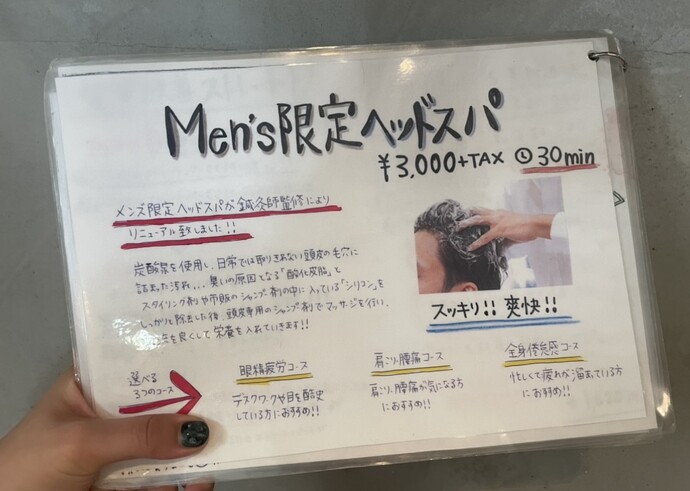 Men's限定ヘッドスパ
¥3,000+TAX 30min
メンズ限定ヘッドスパが鍼灸師監修により
リニューアル致しました!!
炭酸泉を使用し、日常では取りきれない頭皮の毛穴に
詰まった汚れ...臭いの原因となる「酸化皮脂」と
スタイリング剤や市販のシャンプー剤の中に入っている「シリコン」を
しっかりと除去した後、頭皮専用のシャンプー剤でマッサージを行い、
を良くして栄養を入れていきます!!
スッキリ!! 爽快!!
選べる
3つのコース
眼精疲労コース
デスクワークや目を酷使
している方におすすめ!!
肩こり、腰痛コース
肩こり、腰痛が気になる方
におすすめ!!
全身倦怠感コース
忙しくて疲れが溜まっている方
におすすめ!!